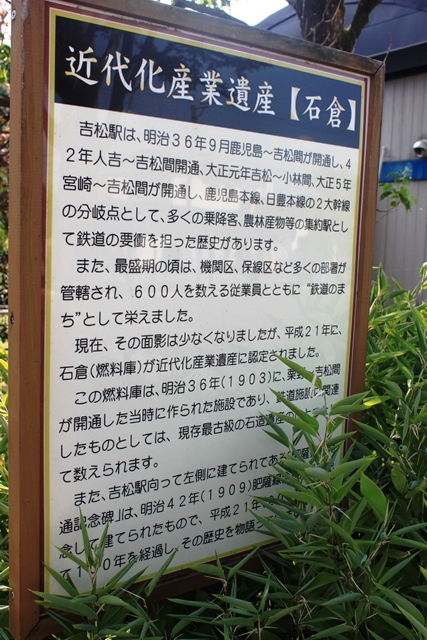 近代化産業遺産【石倉】
吉松駅は、明治36年9月鹿児島〜吉松間が開通し、4
2年人吉〜吉松間開通、大正元年吉松〜小林間、大正5年
宮崎〜吉松間が開通し、鹿児島本線、日豊本線の2大幹線
の分岐点として、多くの乗降客、農林産物等の集約駅とし
て鉄道の要衝を担った歴史があります。
また、最盛期の頃は、機関区、保線区など多くの部署が
管轄され、600人を数える従業員とともに“鉄道のま
ち”として栄えました。
現在、その面影は少なくなりましたが、平成21年に、
石倉(燃料庫)が近代化産業遺産に認定されました。
この燃料庫は、明治36年(1903)に、栗野〜吉松間
が開通した当時に作られた施設であり、鉄道施設に関連
したものとしては、現存最古級の石造遺産の
て数えられます。
また、吉松駅向って左側に建てられてある「肥薩
通記念碑」は、明治42年(1909)肥薩線
念して建てられたもので、平成21年
て100年を経過し、その歴史を物語